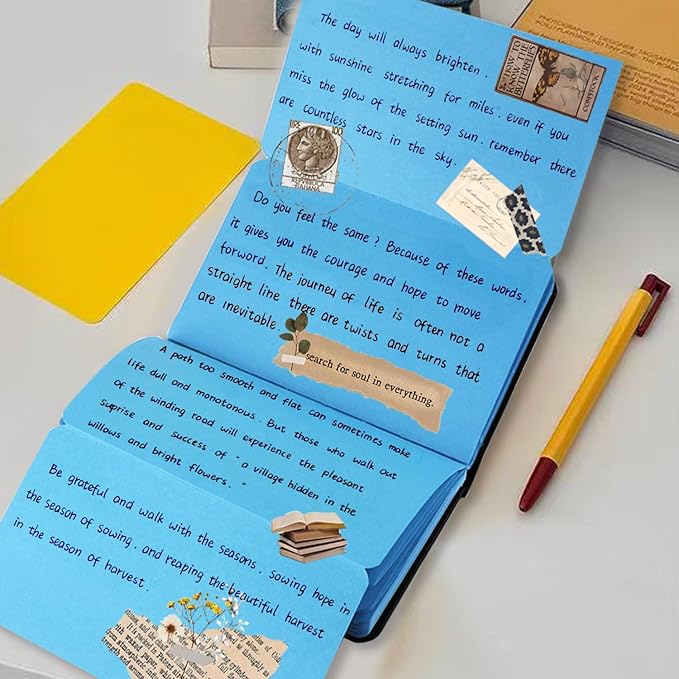 The day will always brighten.
with sunshine stretching for miles. even if you
miss the glow of the setting sun. remember there
are countless stars in the sky.
HOW TO
KNOW THE
BUTTERFLIES
COMSTOCK
LIRE
Do you feel the same? Because of these words,
it gives you the courage and hope to move
forword. The journey of life is often not a
straight line there are twists and turns that
are inevitable.
search for soul in everything.
A path too smooth and flat can sometimes make
life dull and monotonous. But those who walk out
of the winding road will experience the pleasant
Suprise and success of "a village hidden in the
willows and bright flowers."
Be grateful and walk with the seasons. Sowing hope in
the season of sowing. and reaping the beautiful harvest
in the season of harvest.